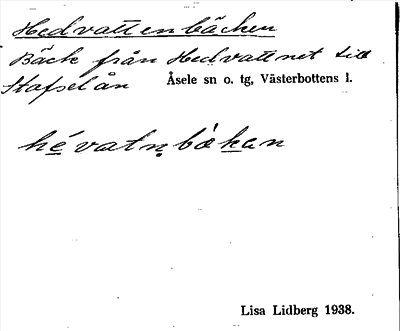 Hedvattenbäcken
Bäck från Hedvattnet till
Stafselån
Åsele sn o. tg, Västerbottens l.
hévatṇbȧkan
Lisa Lidberg 1938.